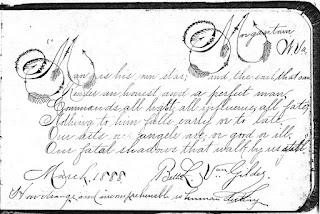 Morgantown
W.Va.
Man is his own star; and the soul that can
Render an honest and a perfect man,
Commands all light, all influence, all fate;
Nothing to him falls early or to late,
Our acts our angels are, or good or ill,
Our fatal shadows that walk by us still.
March, 1888 Van Gilder,
How strange and incomprehensible is human destiny